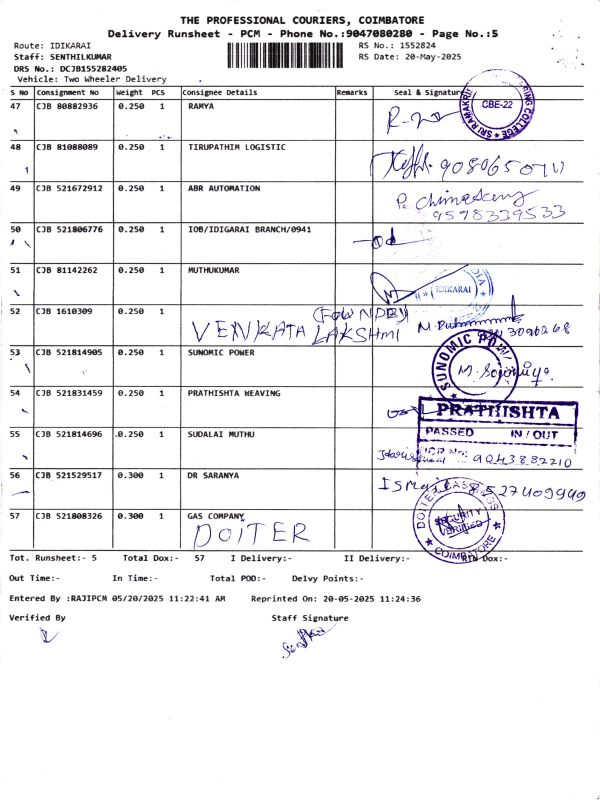 THE PROFESSIONAL COURIERS, COIMBATORE
Delivery Runsheet - PCM - Phone No.:9047080280 - Page No.:5
Route: IDIKARAI
RS No.: 1552824
Staff: SENTHILKUMAR
RS Date: 20-May-2025
DRS No.: DCJB155282405
Vehicle: Two Wheeler Delivery
S No Consignment No Weight PCS Consignee Details Remarks Seal & Signature
47 CJB 80882936 0.250 1 RAMYA
CBE-22
48 CJB 81088089 0.250 1 TIRUPATHIM LOGISTIC
49 CJB 521672912 0.250 1 ABR AUTOMATION
9578339533
50 CJB 521806776 0.250 1 IOB/IDIGARAI BRANCH/0941
51 CJB 81142262 0.250 1 MUTHUKUMAR
IDIKARAI
52 CJB 1610309 0.250 1
VENKATA LAKSHMI
53 CJB 521814905 0.250 1 SUNOMIC POWER
SUNOMIC
54 CJB 521831459 0.250 1 PRATHISHTA WEAVING
PRATHISHTA
PASSED IN/OUT
55 CJB 521814696 0.250 1 SUDALAI MUTHU
9043882210
56 CJB 521529517 0.300 1 DR SARANYA
57 CJB 521808326 0.300 1 GAS COMPANY
DOITER
SECURITY
VERIFIED
COIMBATORE
Tot. Runsheet:- 5 Total Dox:- 57 I Delivery:- II Delivery:- RTN Dox:-
Out Time:- In Time:- Total POD:- Delvy Points:-
Entered By :RAJIPCM 05/20/2025 11:22:41 AM Reprinted On: 20-05-2025 11:24:36
Verified By Staff Signature